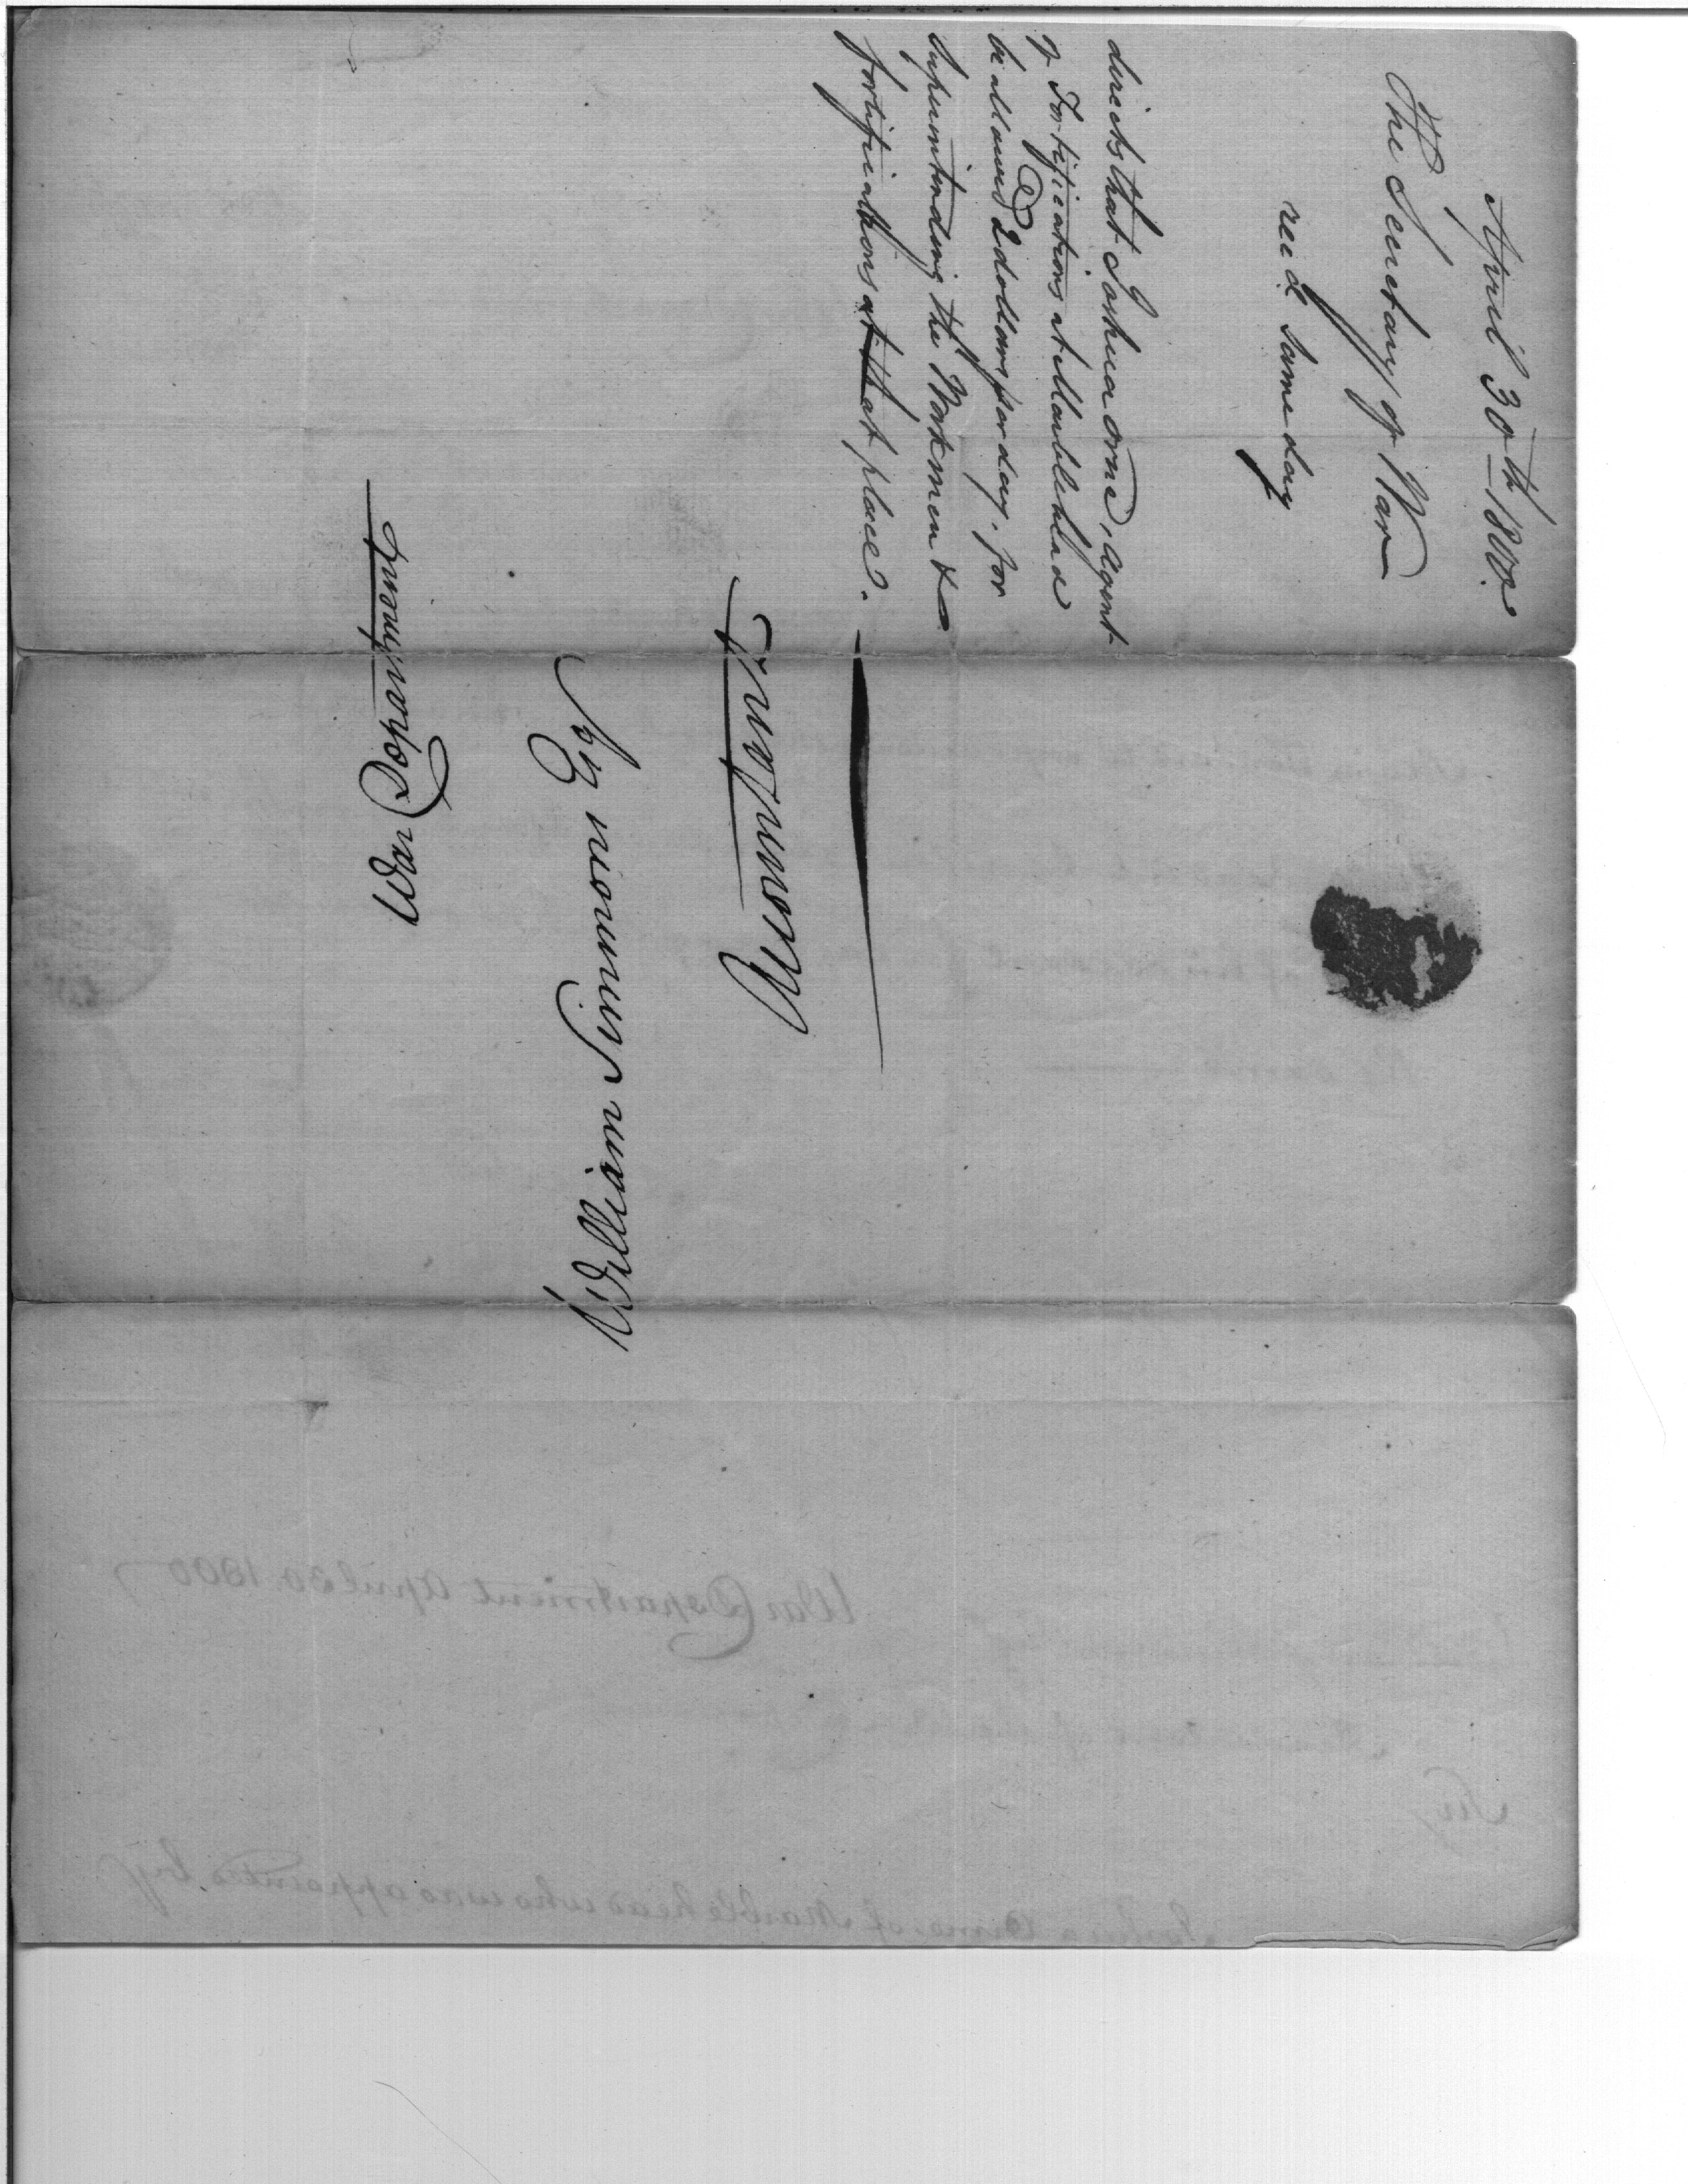 April 30th 1800.
The Secretary of War
recd same day
directs that Joshua Orne, agent
of Fortifications at Marblehead
be allowed 2 dollars per day. for
Superintending the Workmen &
fortifications at that place.
Accomptant
William Simmons Esq
War Department
War Department April 30. 1800
Sir,
Joshua Orne of Marblehead who was appointed by